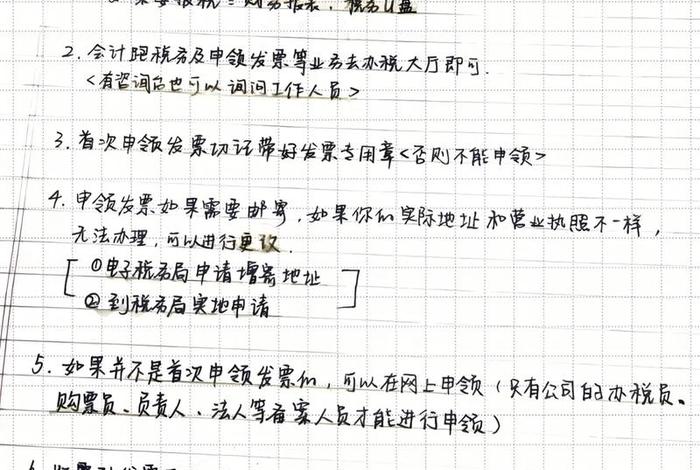 财务报表、税务U盘
2. 会计跑税务及申领发票等业务去办税大厅即可.
<有咨询台也可以询问工作人员>
3. 首次申领发票切记带好发票专用章<否则不能申领>
4. 申领发票如果需要邮寄,如果你们实际地址和营业执照不一样,
无法办理,可以进行更改.
①电子税务局申请增寄地址
②到税务局实地申请
5. 如果并不是首次申领发票们,可以在网上申领(只有公司的办税员、
购票员、负责人、法人等备案人员才能进行申领)